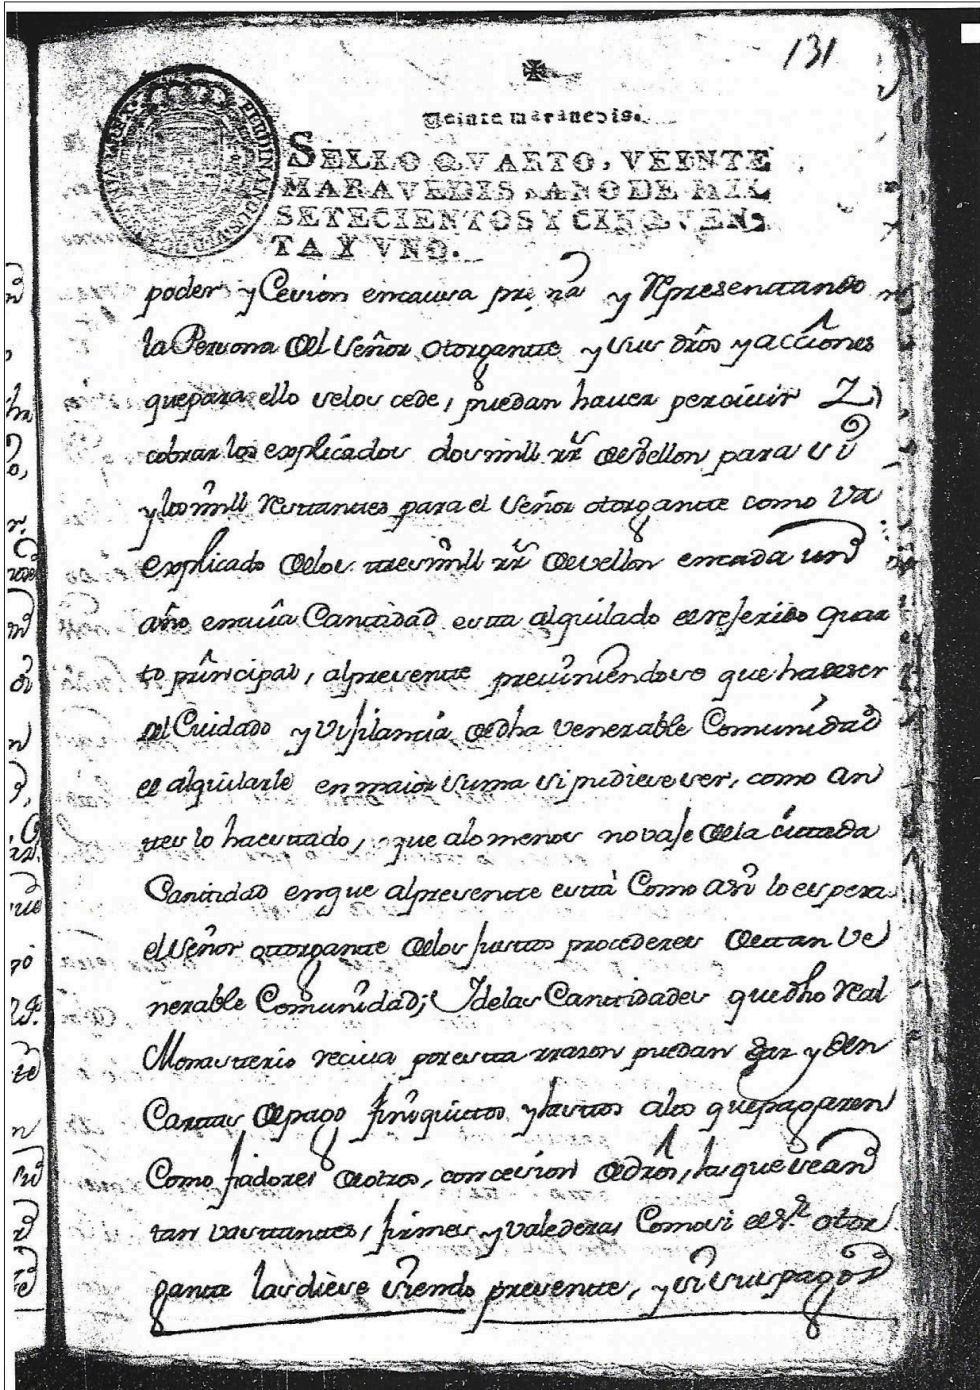 131
Veinte maravedis.
SELLO QVARTO, VEINTE
MARAVEDIS, AÑO DE MIL
SETECIENTOS Y CINQVEN-
TA Y VNO.
poder y Cesion en causa pro.ª y Representando
la Persona del señor otorgante y sus dros y acciones
que para ello selos cede, puedan haver percivir Z
cobrar los explicados dos mill rrs de vellon para si
y los mill Restantes para el señor otorgante como va
explicado delos tres mill rrs de vellon en cada un
año en cuia Cantidad esta alquilado el referido quar
to principal, al presente previniendose que ha de ser
del Cuidado y vijilancia de dha venerable Comunidad
el alquilarle en maior suma si pudiese ser, como an
tes lo ha estado, que alo menos no vaje de la citada
Cantidad en que al presente està Como asi lo espera
el señor otorgante delos justos procederes de tan ve
nerable Comunidad; Y delas Cantidades que dho Real
Monasterio reciva por esta rrazon puedan dar y den
Cartas de pago finiquitos y lastos alos que pagaren
Como fiadores de otros, con cesion de dros, las que sean
tan vastantes, firmes y valederas Como si el Sr. otor
gante las diese siendo presente, y si sus pagos